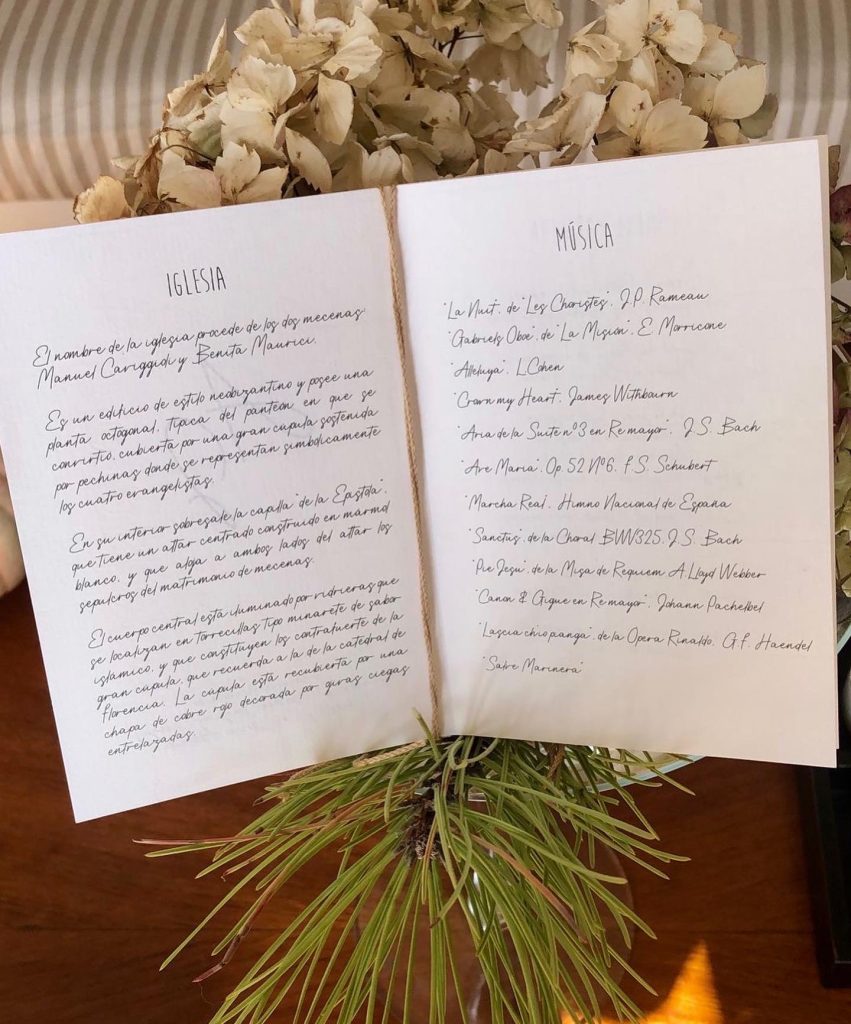 IGLESIA
El nombre de la iglesia procede de los dos mecenas:
Manuel Cariggidi y Benita Maurici.
Es un edificio de estilo neobizantino y posee una
planta octogonal. Típica del panteón en que se
convirtió, cubierta por una gran cupula sostenida
por pechinas donde se representan simbólicamente
los cuatro evangelistas.
En su interior sobresale la capilla "de la Epístola",
que tiene un altar centrado construido en mármol
blanco, y que aloja a ambos lados del altar los
sepulcros del matrimonio de mecenas.
El cuerpo central está iluminado por vidrieras que
se localizan en torrecillas tipo minarete de sabor
islámico, y que constituyen los contrafuerte de la
gran cupula, que recuerda a la de la catedral de
Florencia. La cupula está recubierta por una
chapa de cobre rojo decorada por giras ciegas
entrelazadas.
MÚSICA
"La Nuit", de "Les Choristes". J.P. Rameau
"Gabriels Oboe", de "La Misión". E. Morricone
"Alleluya". L.Cohen
"Crown my Heart". James Withbourn
"Aria de la Suite nº3 en Re mayor". J.S. Bach
"Ave Maria". Op. 52 Nº6. F.S. Schubert
"Marcha Real". Himno Nacional de España
"Sanctus", de la Choral BWV325. J.S. Bach
"Pie Jesu", de la Misa de Requiem A. Lloyd Webber
"Canon & Gigue en Re mayor". Johann Pachelbel
"Lascia chio pianga", de la Opera Rinaldo. G.F. Haendel
"Salve Marinera"